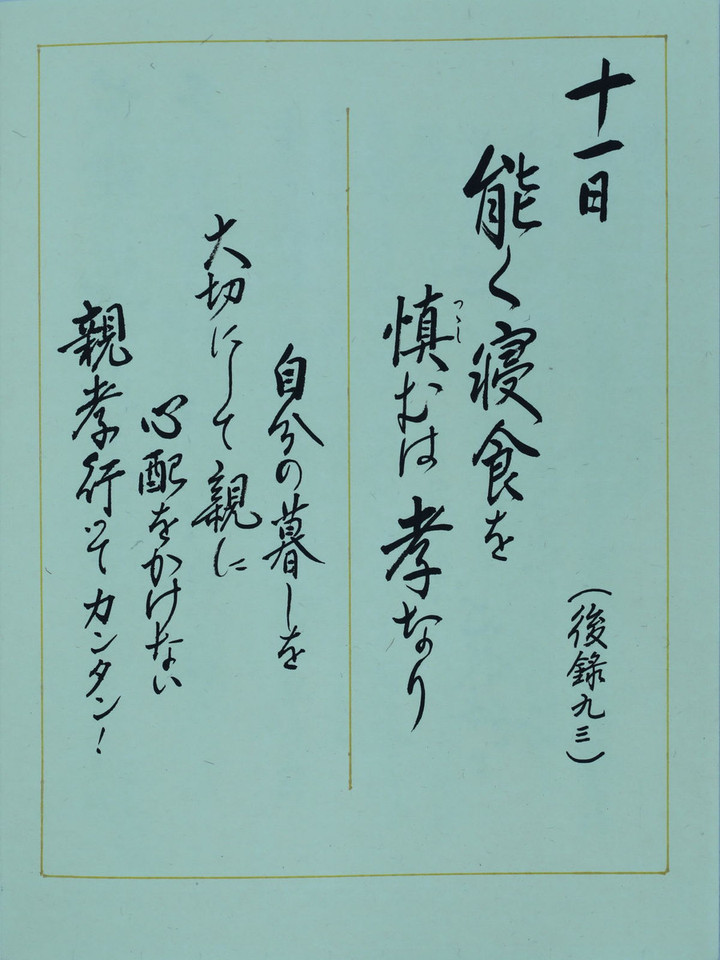 十一日
(後録九三)
能く寝食を
慎むは孝なり
つゝし
自分の暮しを
大切にして親に
心配をかけない
親孝行ってカンタン!